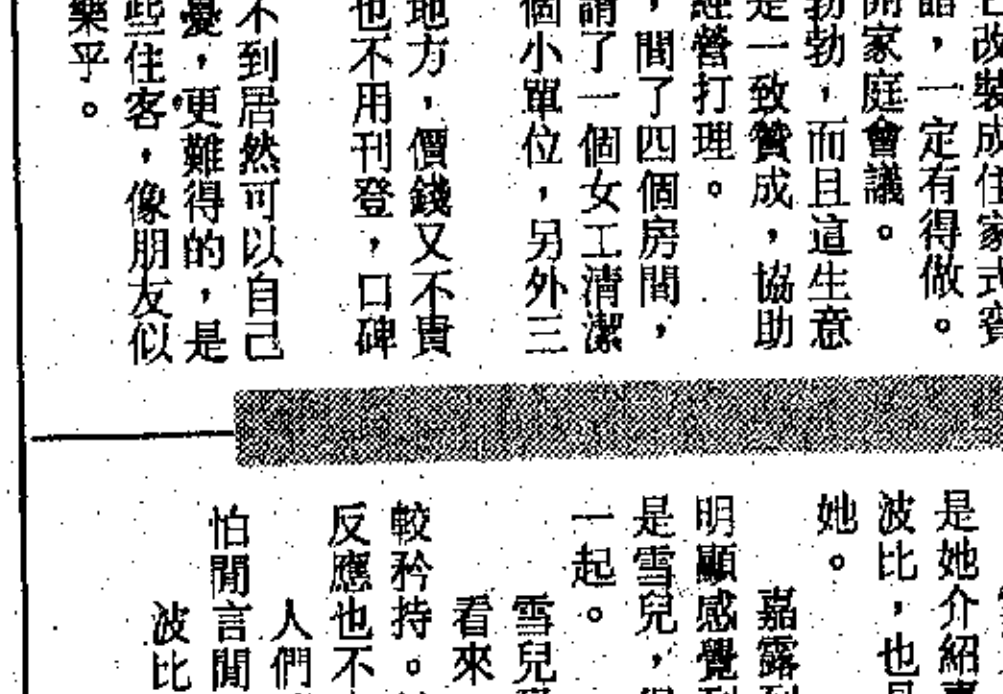 改裝成住家式賓
,一定有得做。
開家庭會議。
勃勃,而且這生意
是一致贊成,協助
經營打理。
,間了四個房間,
請了一個女工清潔
個小單位,另外三
地方,價錢又不貴
也不用刊登,口碑
不到居然可以自己
憂,更難得的,是
些住客,像朋友似
樂乎。
是她介紹
波比,也
她。
嘉露
明顯感覺
是雪兒,
一起。
雪兒
看來
較矜持。
反應也不
人們
怕閒言閒
波比